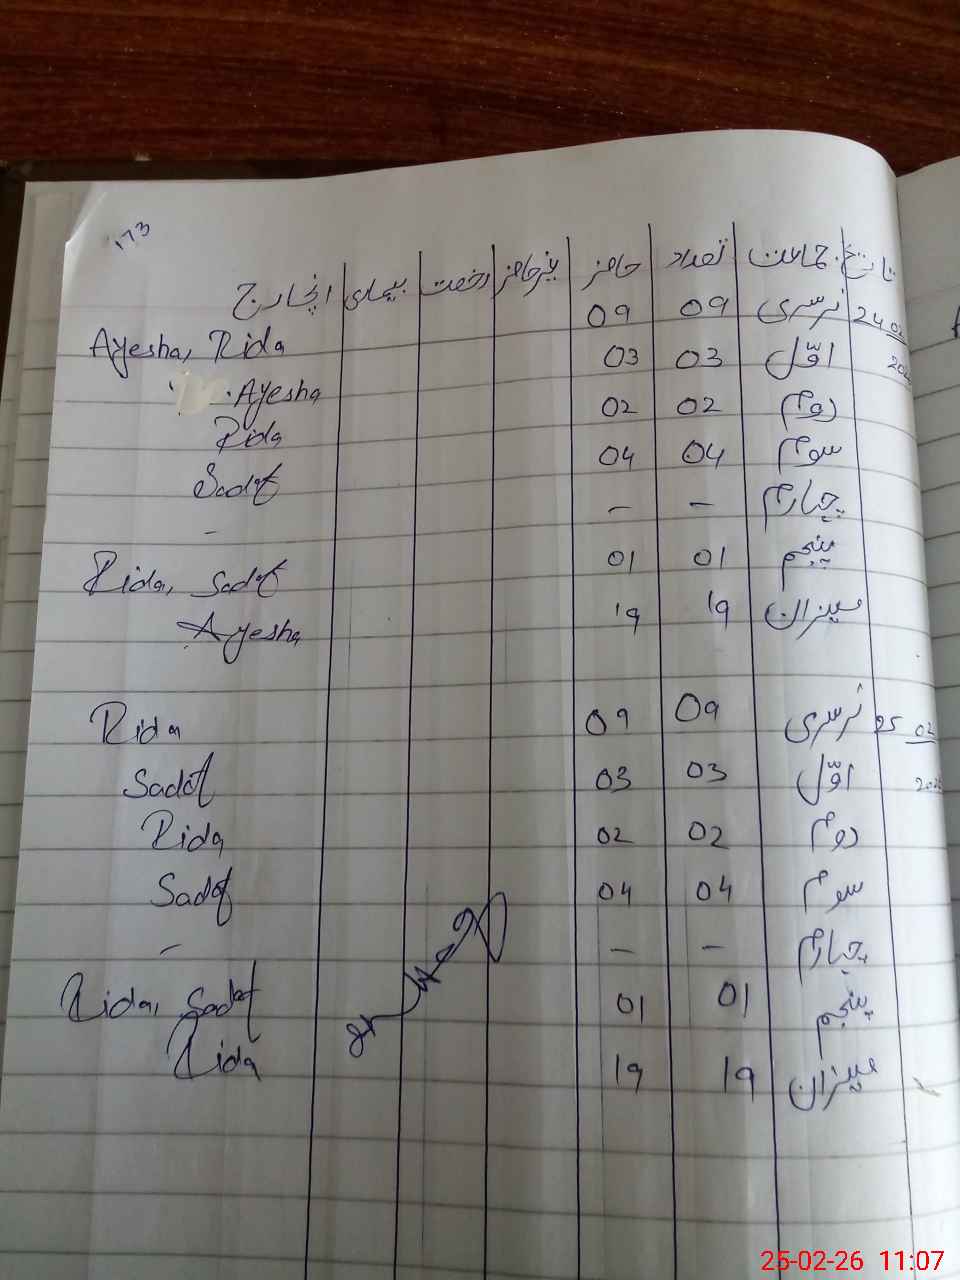 173
تاریخ جماعت تعداد حاضر غیرحاضر رخصت بیماری انچارج
24 02 نرسری 09 09 Ayesha, Rida
اوّل 03 03 Ayesha
دوم 02 02 Rida
سوم 04 04 Sadaf
چہارم - - -
پنجم 01 01 Rida, Sadaf
میزان 19 19 Ayesha
25 02 نرسری 09 09 Rida
2026 اوّل 03 03 Sadaf
دوم 02 02 Rida
سوم 04 04 Sadaf
چہارم - - -
پنجم 01 01 Rida, Sadaf
میزان 19 19 Rida
25-02-26 11:07